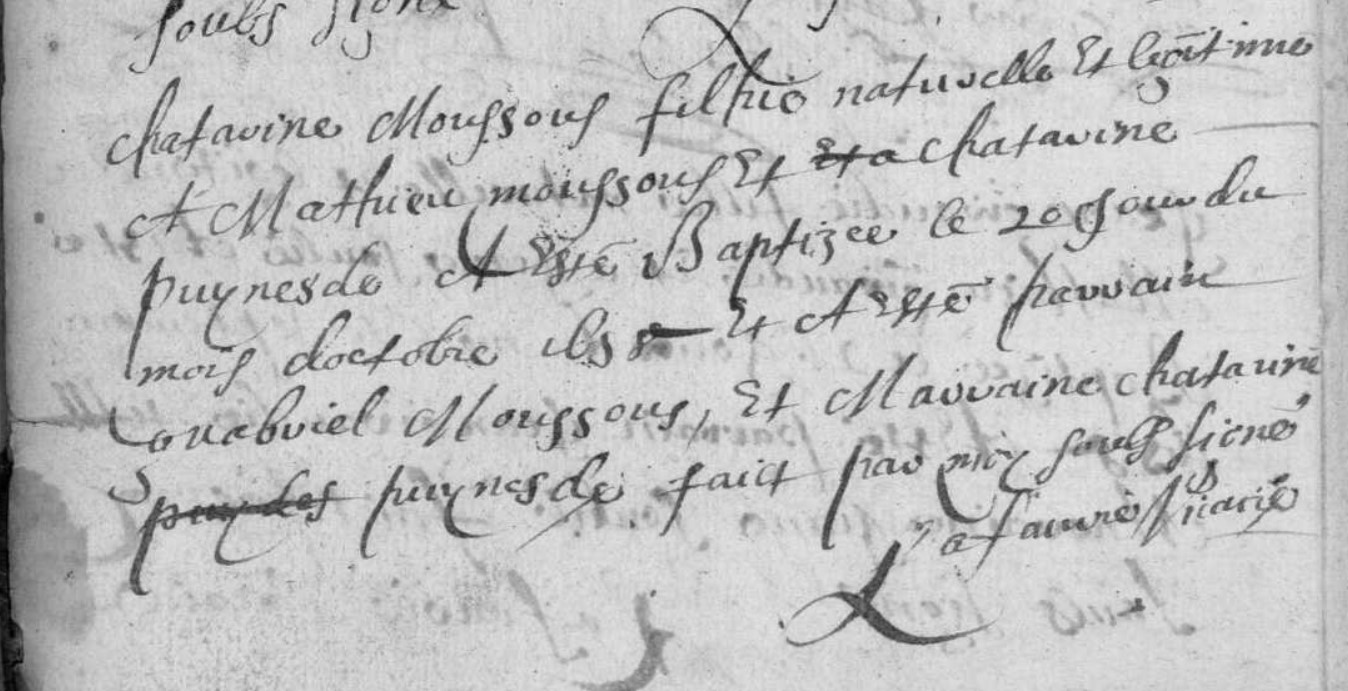 soubs signé
Chatarine Moussous filhie naturelle Et legitime
A Mathieu moussous Et Et a chatarine
puynesde A Esté Baptizee le 20 Jour du
mois doctobre 1658 Et A Esté parrain
Gabriel Moussous, Et Marraine chatarine
puydes puynesde faict par moy soubs signé
Lafaurie vicarie